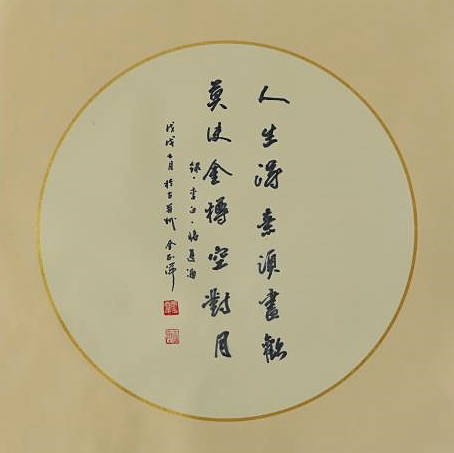 人生得意須盡歡
莫使金樽空對月
錄·李白·將進酒
戊戌七月於古